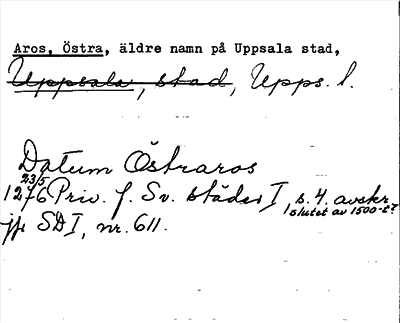 Aros, Östra, äldre namn på Uppsala stad,
Uppsala, stad, Upps. l.
Datum Östraros
23/5
1276 Priv. f. Sv. städer I, s. 4. avskr.
slutet av 1500-t?
jfr SD I, nr. 611.